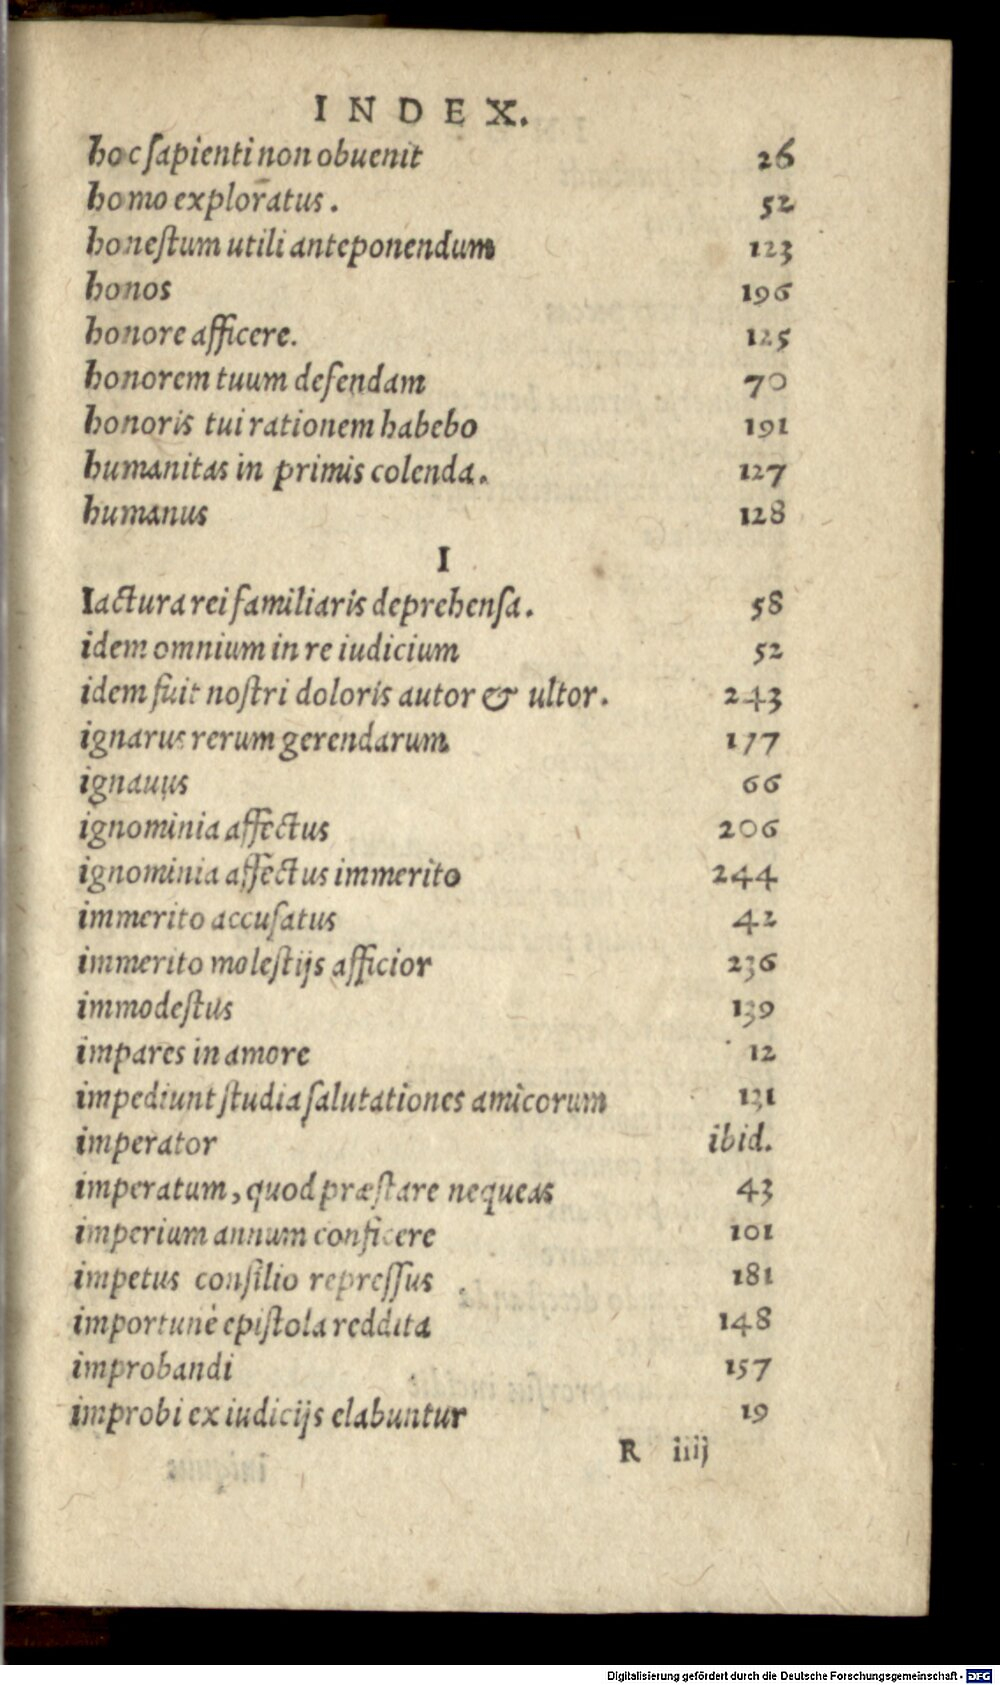 INDEX.
hoc sapienti non obuenit 26
homo exploratus. 52
honeſtum utili anteponendum 123
honos 196
honore afficere. 125
honorem tuum defendam 70
honoris tui rationem habebo 191
humanitas in primis colenda. 127
humanus 128
I
Iactura rei familiaris deprehenſa. 58
idem omnium in re iudicium 52
idem fuit noſtri doloris autor & ultor. 243
ignarus rerum gerendarum 177
ignauus 66
ignominia affectus 206
ignominia affectus immerito 244
immerito accuſatus 42
immerito moleſtijs afficior 236
immodeſtus 139
impares in amore 12
impediunt ſtudia ſalutationes amicorum 131
imperator ibid.
imperatum, quod præſtare nequeas 43
imperium annum conficere 101
impetus conſilio repreſſus 181
importunè epiſtola reddita 148
improbandi 157
improbi ex iudicijs elabuntur 19
R iiij
Digitalisierung gefördert durch die Deutsche Forschungsgemeinschaft - DFG